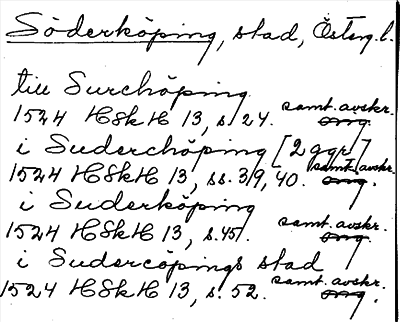 Söderköping, stad, Österg.l.
till Surchöping
samt. avskr.
1524 HSkH 13, s. 24. orig.
i Suderchöping [2 ggr]
samt. avskr.
1524 HSkH 13, ss. 39, 40. orig.
i Suderköping
samt. avskr.
1524 HSkH 13, s. 45. orig.
i Sudercöpings stad
samt. avskr.
1524 HSkH 13, s. 52. orig.